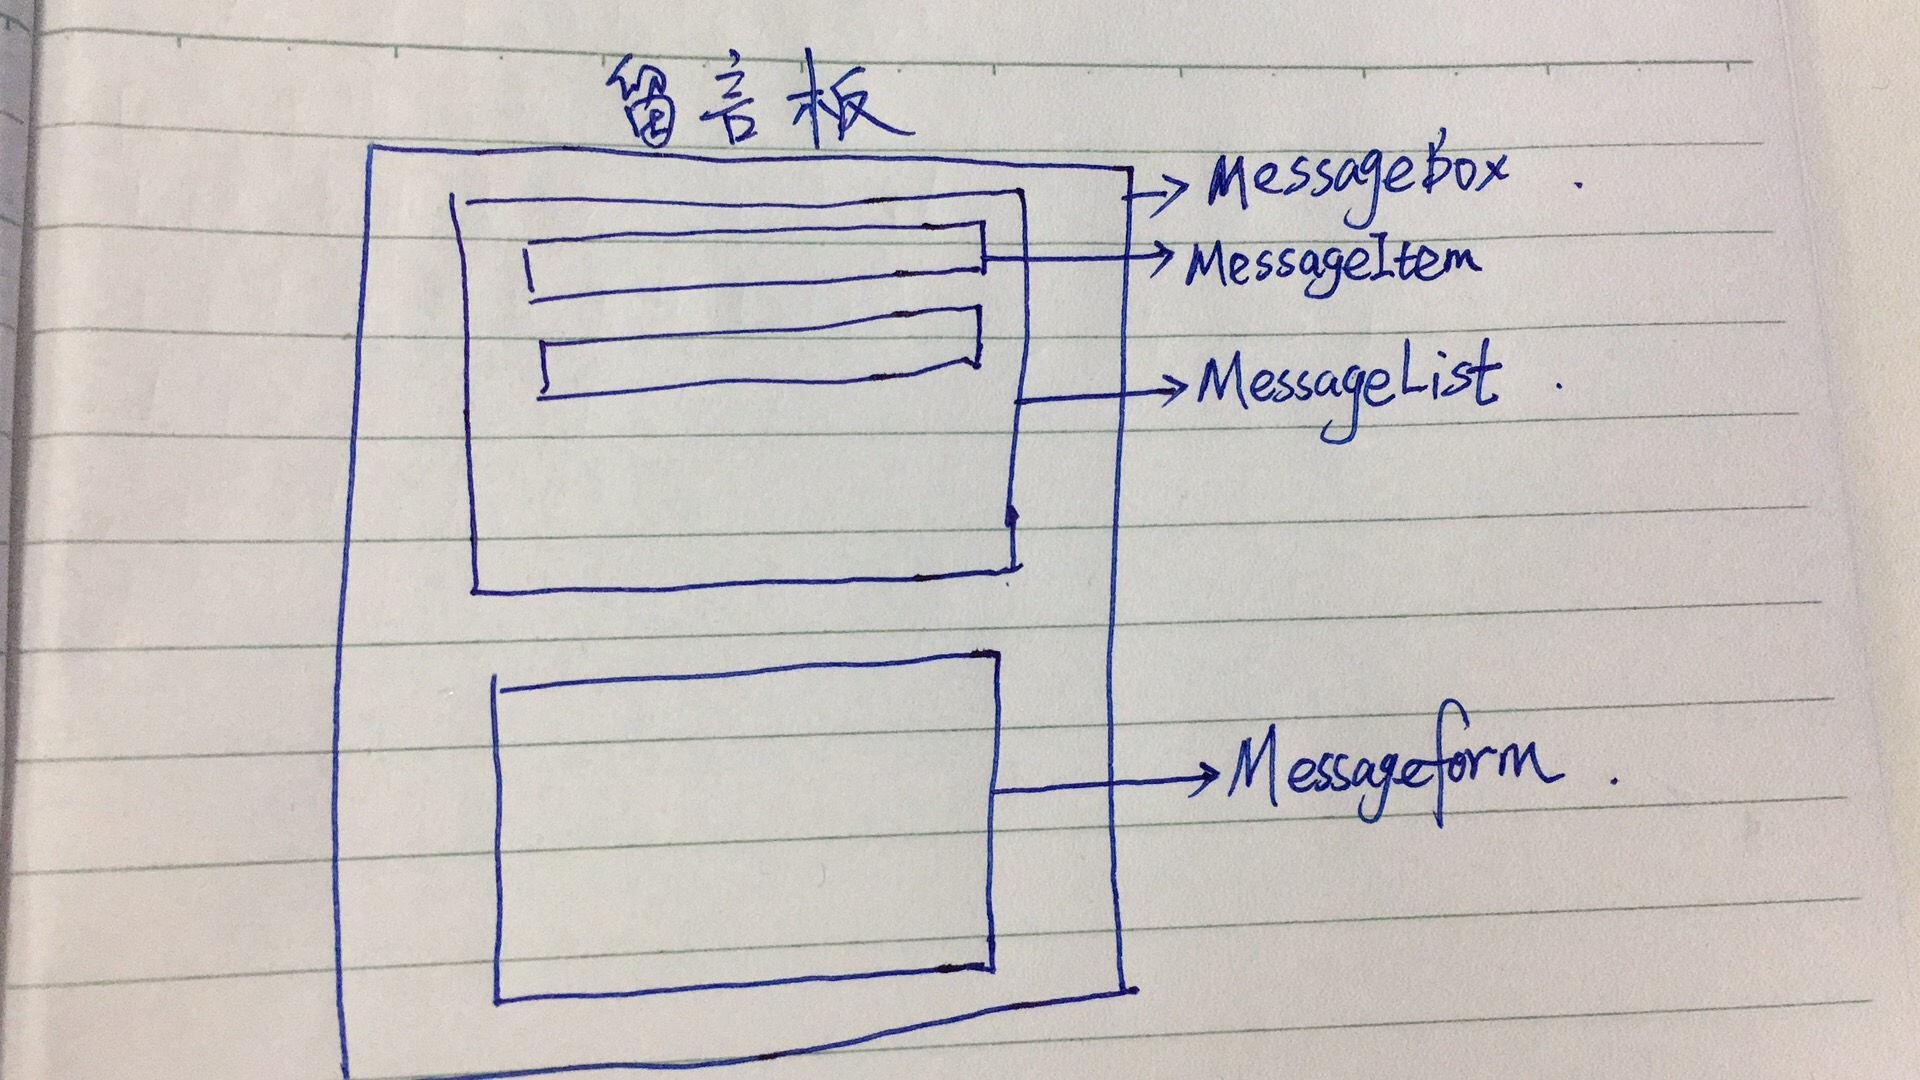 留言板
Messagebox
MessageItem
MessageList
Messageform